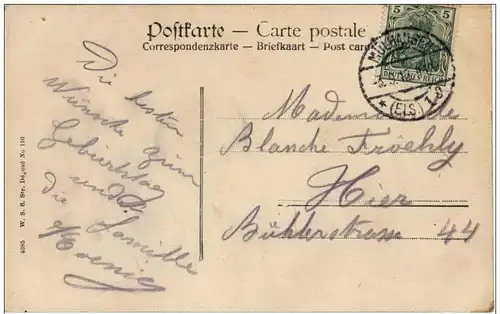 Postkarte — Carte postale
Correspondenzkarte — Briefkaart — Post card
5 5
DEUTSCHES REICH
MÜLHAUSEN
★ (ELS) 1 g
Die besten
Wünsche zum
Geburtstag
und
die Familie
Koenig
Mademoiselle
Blanche Froehly
Hier
Bühlerstrasse 44
4385 W. S. S. Str. Déposé No 110